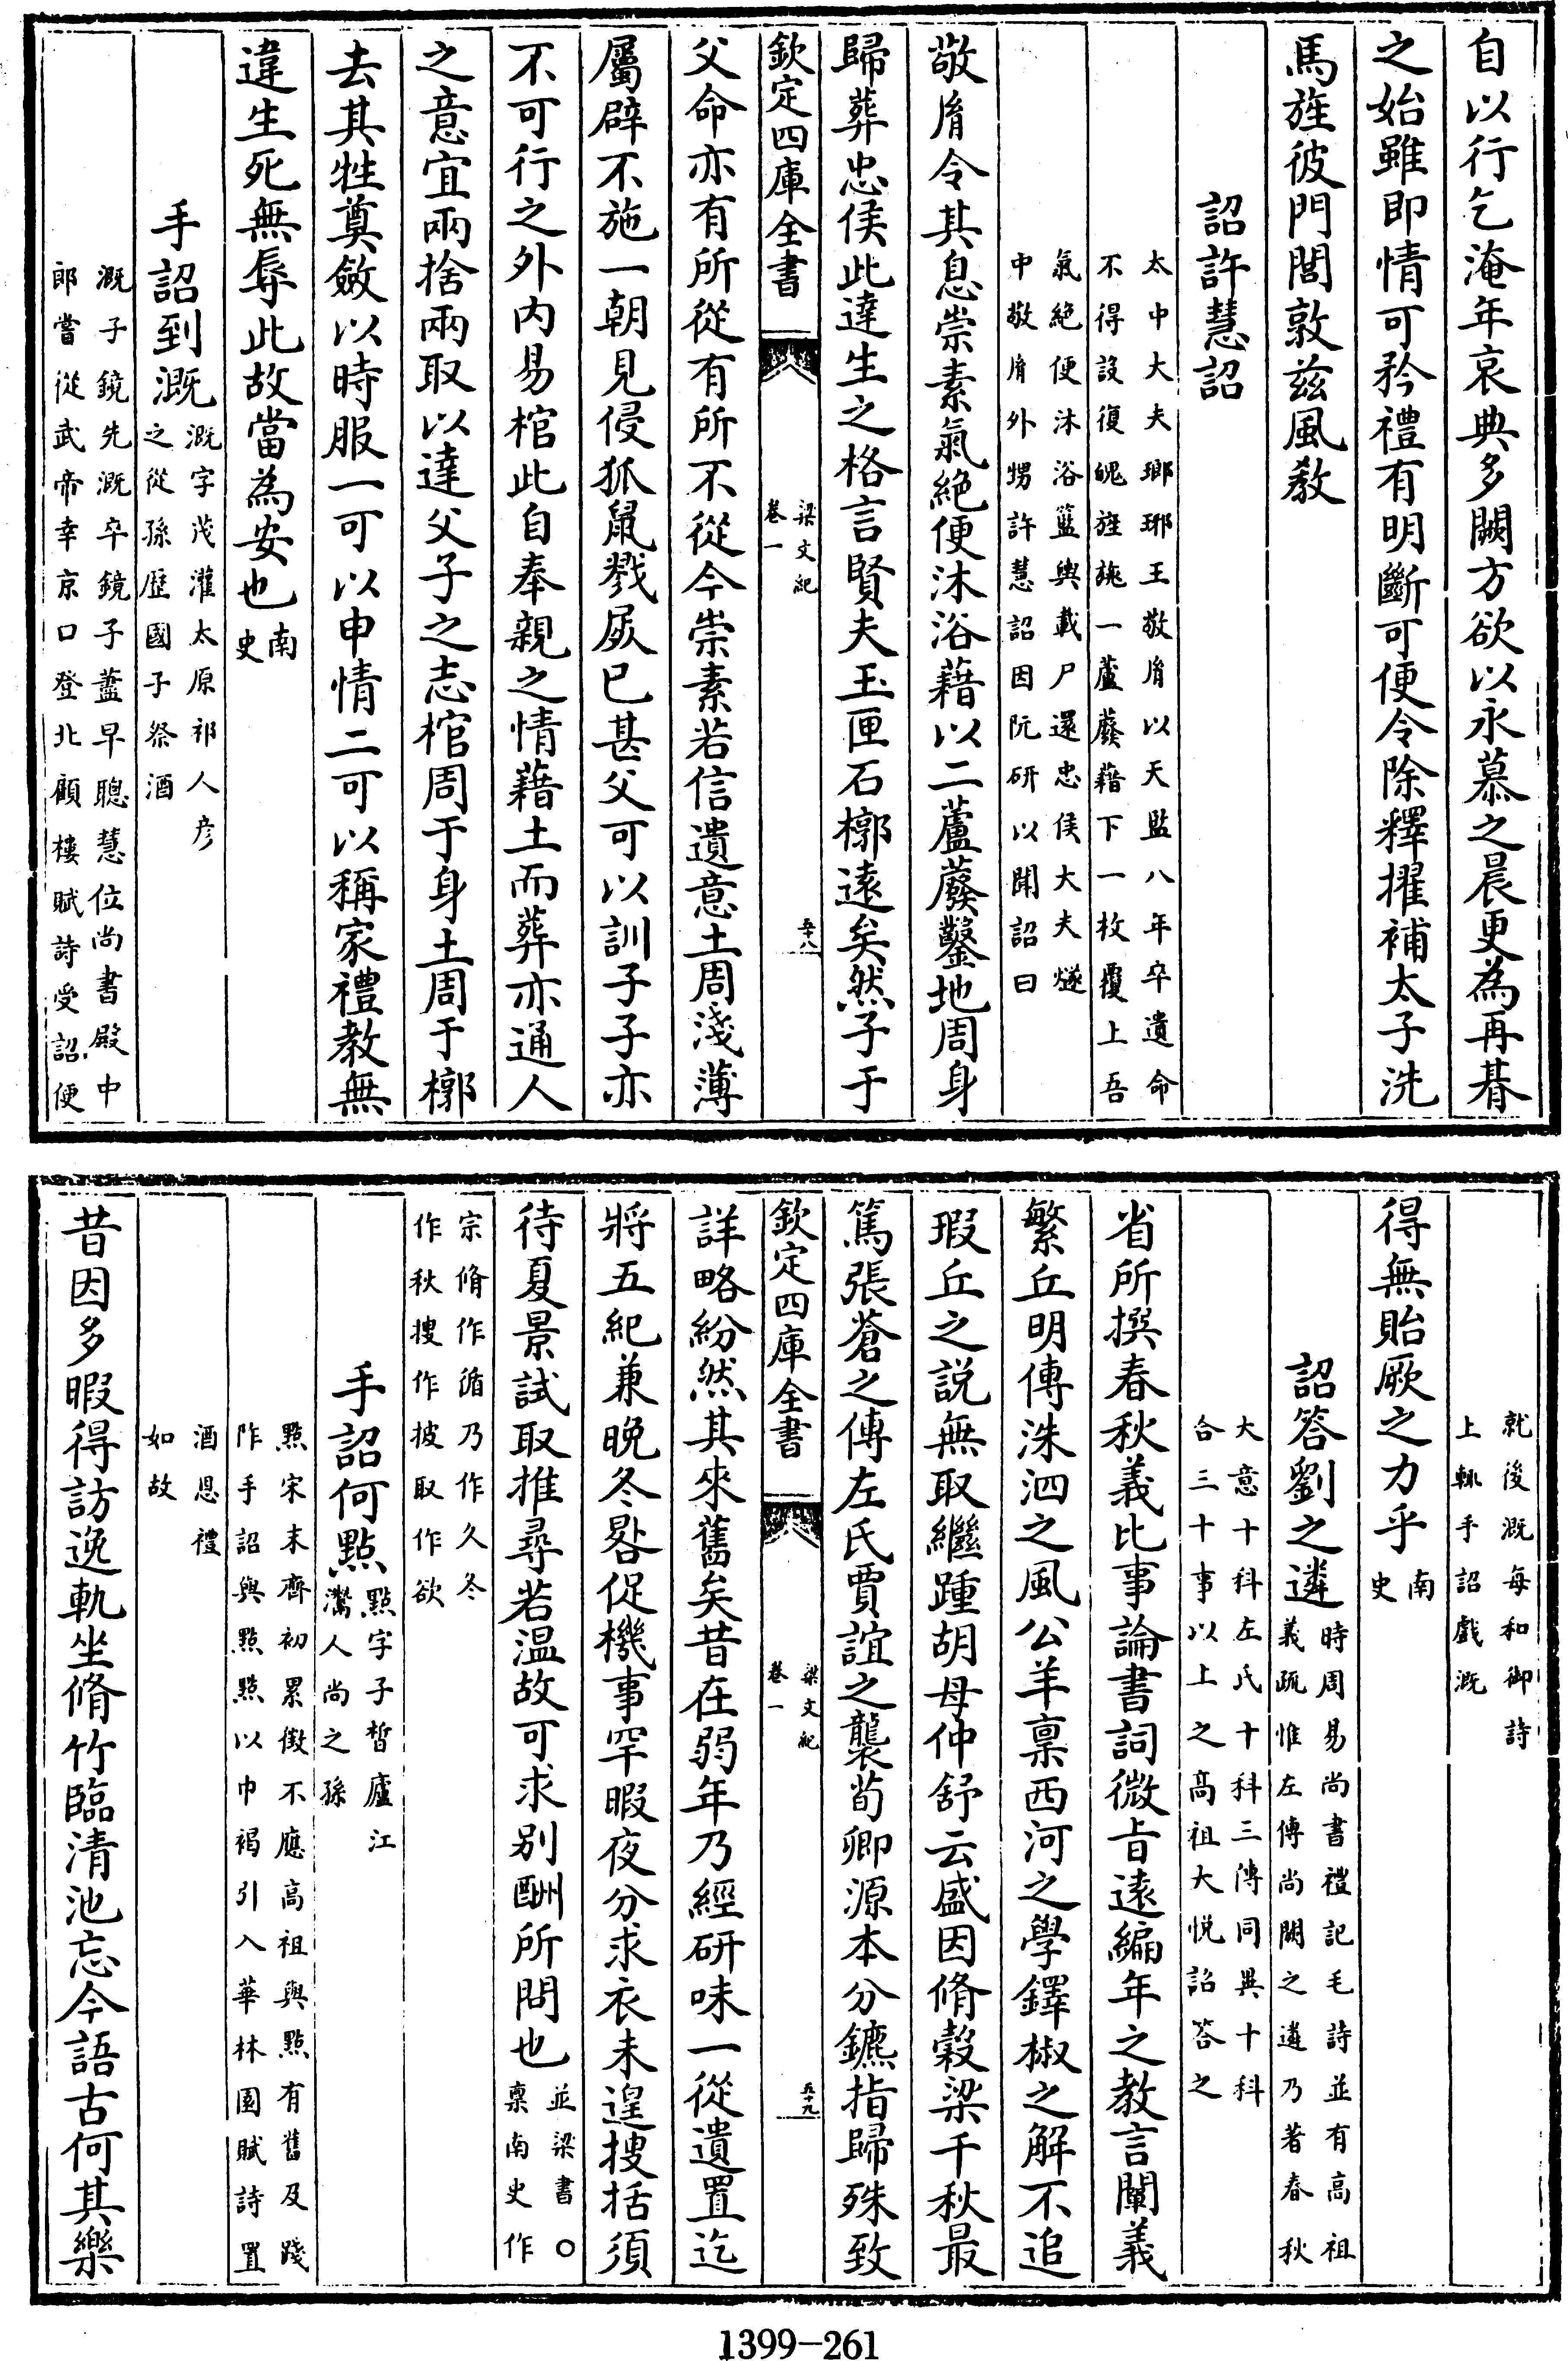 自以行乞淹年哀典多闕方欲以永慕之晨更為再朞
之始雖即情可矜禮有明斷可便令除釋擢補太子洗
馬旌彼門閭敦兹風教
詔許慧詔
太中大夫瑯琊王敬胤以天監八年卒遺命
不得設復魄旌旐一蘆藾藉下一枚覆上吾
氣絶便沐浴籃輿載尸還忠侯大夫㸂
中敬胤外甥許慧詔因阮研以聞詔曰
敬胤令其息崇素氣絶便沐浴藉以二蘆藾鑿地周身
歸葬忠侯此達生之格言賢夫玉匣石槨遠矣然子于
欽定四庫全書
梁文紀
卷一
五十八
父命亦有所從有所不從今崇素若信遺意土周淺薄
屬辟不施一朝見侵狐鼠戮屍已甚父可以訓子子亦
不可行之外内易棺此自奉親之情藉土而葬亦通人
之意宜兩捨兩取以達父子之志棺周于身土周于槨
去其牲奠斂以時服一可以申情二可以稱家禮教無
違生死無辱此故當為安也南
史
手詔到溉溉字茂灌太原祁人彦
之從孫歴國子祭酒
溉子鏡先溉卒鏡子藎早聰慧位尚書殿中
郎嘗從武帝幸京口登北顧樓賦詩受詔便
就後溉每和御詩
上輒手詔戲溉
得無貽厥之力乎南
史
詔答劉之遴時周易尚書禮記毛詩並有高祖
義疏惟左傳尚闕之遴乃著春秋
大意十科左氏十科三傳同異十科
合三十事以上之高祖大悦詔答之
省所撰春秋義比事論書詞微旨遠編年之教言闡義
繁丘明傳洙泗之風公羊稟西河之學鐸椒之解不追
瑕丘之説無取繼踵胡母仲舒云盛因脩榖梁千秋最
篤張蒼之傳左氏賈誼之襲荀卿源本分鑣指歸殊致
欽定四庫全書
梁文紀
卷一
五十九
詳略紛然其來舊矣昔在弱年乃經研味一從遺置迄
將五紀兼晚冬晷促機事罕暇夜分求衣未遑搜括須
待夏景試取推尋若温故可求别酬所問也並梁書○
稟南史作
宗脩作循乃作久冬
作秋搜作披取作欲
手詔何點點字子晳廬江
灊人尚之孫
點宋末齊初累徵不應高祖與點有舊及踐
阼手詔與點點以巾褐引入華林園賦詩置
酒恩禮
如故
昔因多暇得訪逸軌坐脩竹臨清池忘今語古何其樂
1399-261